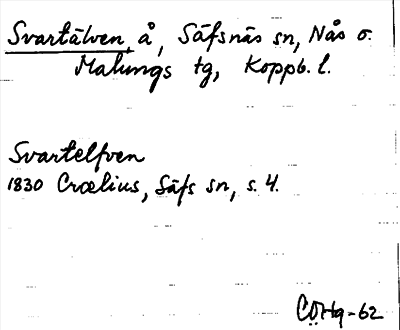 Svartälven, å, Säfsnäs sn, Nås o.
Malungs tg, Koppb. l.
Svartelfven
1830 Crælius, Säfs sn, s. 4.
CÖHg-62